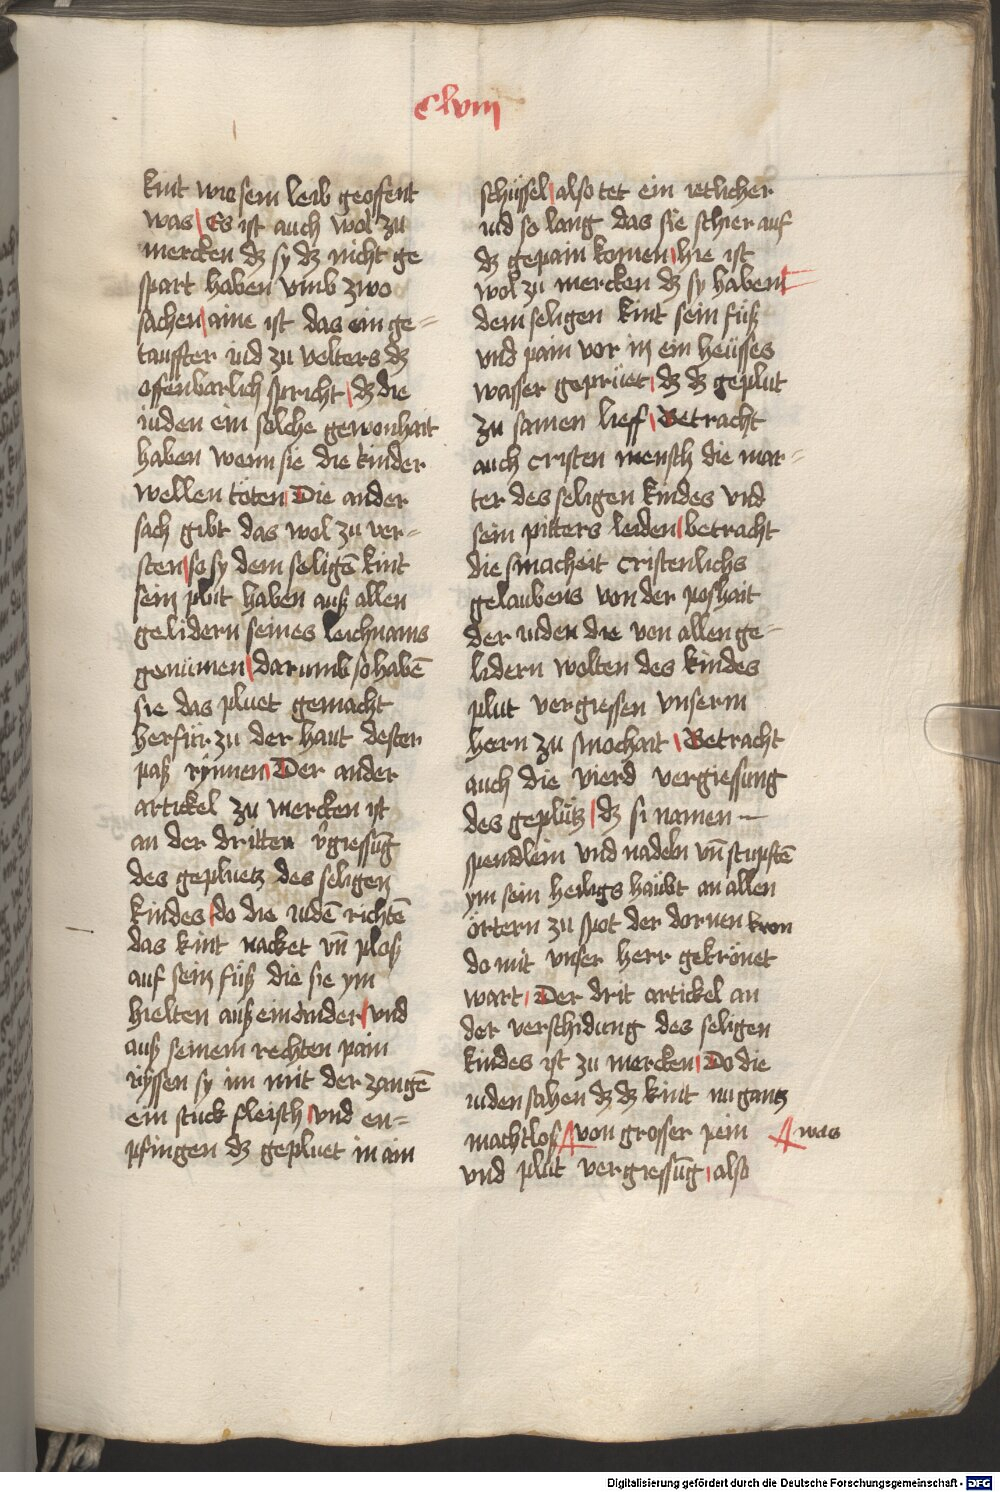 clviii
kint wie sein leib geoffent
was Es ist auch wol zu
mercken dz sy dz nicht ge
spart haben vmb zwo
sachen aine ist das ein ge-
tauffter iud zu velters dz
offenbarlich spricht dz die
iuden ein solche gewonhait
haben wenn sie die kinder
wellen töten Die ander
sach gibt das wol zu ver-
sten so sy dem seligē kint
sein plut haben auß allen
gelidern seines leichnams
genūmen darumb so habē
sie das pluet gemacht
herfür zu der haut dester
paß rynnen Der ander
artickel zu mercken ist
an der dritten v'giessūg
des gepluetz des seligen
kindes do die iudē richtē
das kint nacket vn̄ ploß
auf sein füß die sie ym
hielten auß einander vnd
auß seinem rechten pain
ryssen sy im mit der zangē
ein stuck fleisch vnd en-
pfingen dz gepluet in ain
schüssel also tet ein ietlicher
iud so lang das sie schier auf
dz gepain komen hie ist
wol zu mercken dz sy haben
dem seligen kint sein füß
vnd pain vor in ein heüsses
wasser geprüet dz dz geplut
zu samen lieff Betracht
auch cristen mensch die mar-
ter des seligen kindes vnd
sein pitters leiden betracht
die smacheit cristenlichs
gelaubens von der poshait
der iuden die von allen ge-
lidern wolten des kindes
plut vergiessen vnserm
hern zu smochait Betracht
auch die vierd vergiessung
des geplütz dz si namen
spendlein vnd nadeln vn̄ stupftē
ym sein heiligs haübt an allen
örtern zu spot der dornen kron
do mit vnser herr gekrönet
wart Der drit artickel an
der verschidung des seligen
kindes ist zu mercken Do die
iuden sahen dz dz kint nu gantz
machtloß von grosser pein was
vnd plut vergiessūg also
Digitalisierung gefördert durch die Deutsche Forschungsgemeinschaft - DFG